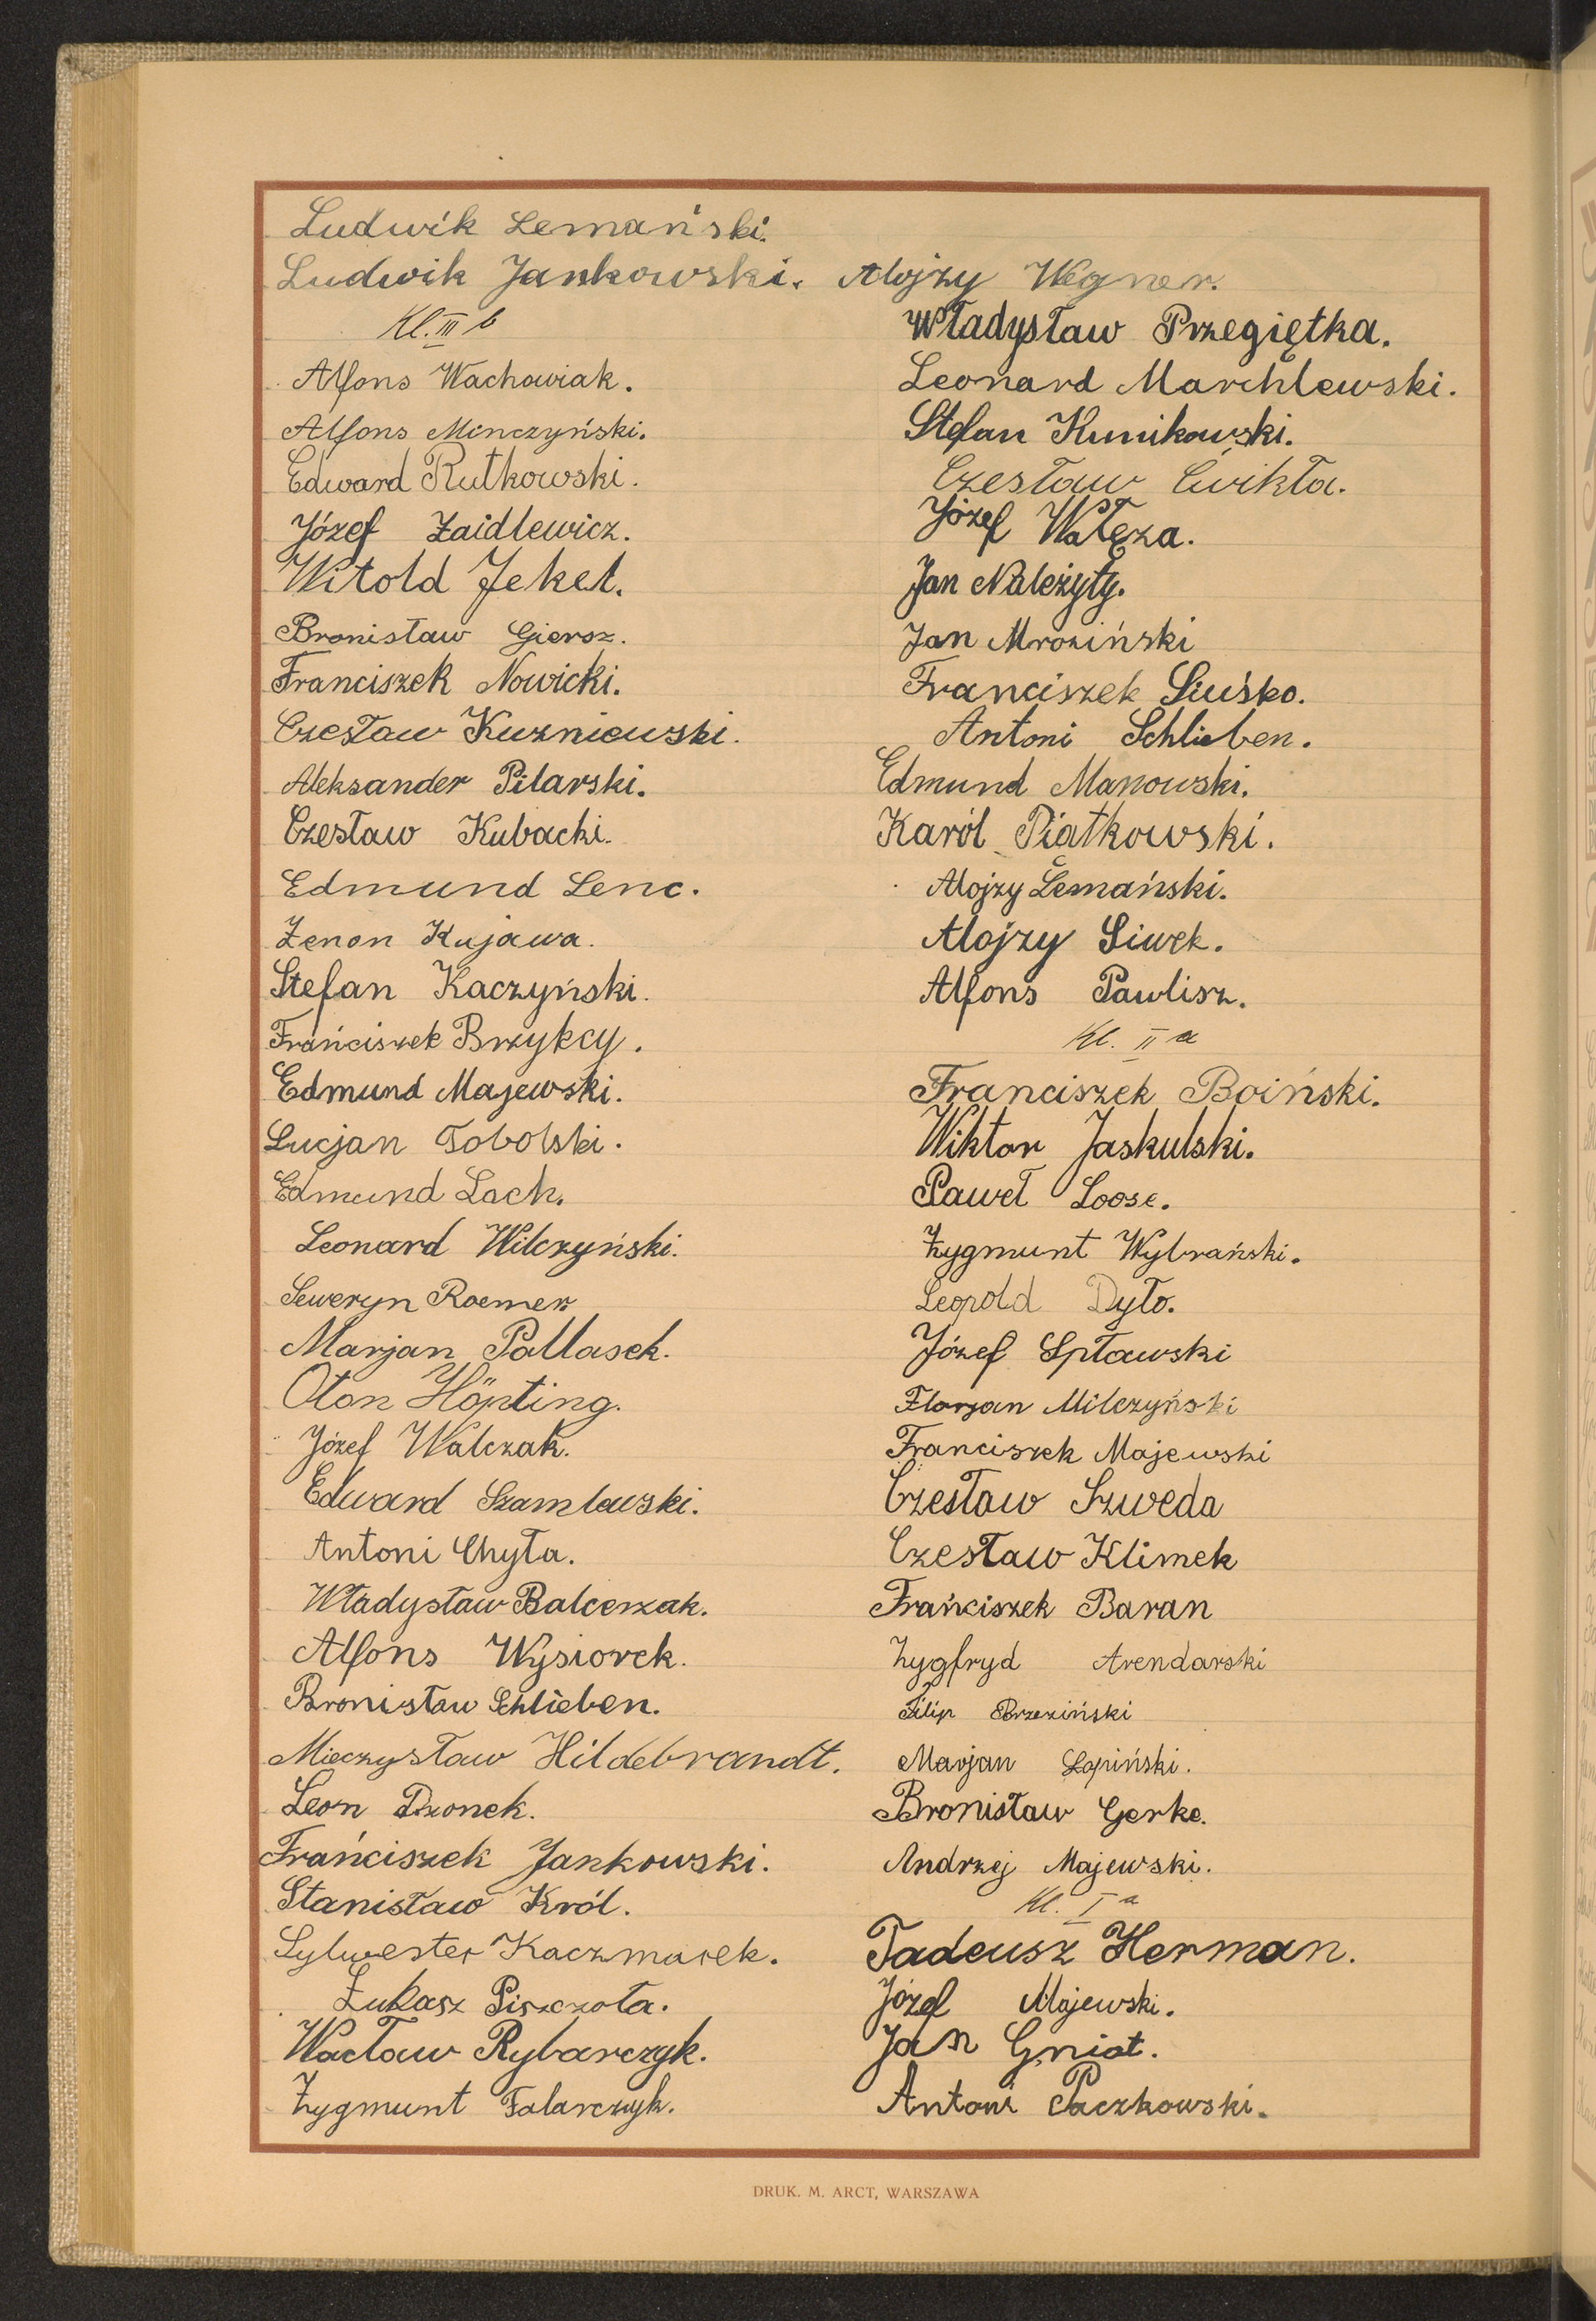 Ludwik Lemański.
Ludwik Jankowski.
Kl. III b
Alfons Wachowiak.
Alfons Minczyński.
Edward Rutkowski.
Józef Zaidlewicz.
Witold Jekel.
Bronisław Giersz.
Franciszek Nowicki.
Czesław Kuzniewski.
Aleksander Pilarski.
Czesław Kubacki.
Edmund Lenc.
Zenon Kujawa.
Stefan Kaczyński.
Frańciszek Brzykcy.
Edmund Majewski.
Lucjan Tobolski.
Edmund Lach.
Leonard Wilczyński.
Seweryn Roemer
Marjan Pallasch.
Oton Höpting.
Józef Walczak.
Edward Szamlewski.
Antoni Chyła.
Władysław Balcerzak.
Alfons Wysiorek.
Bronisław Schlieben.
Mieczysław Hildebrandt.
Leon Dzonek.
Frańciszek Jankowski.
Stanisław Król.
Sylwester Kaczmarek.
Łukasz Piszczoła.
Wacław Rybarczyk.
Zygmunt Falarczyk.
Alojzy Wegner.
Władysław Przegiętka.
Leonard Marchlewski.
Stefan Kunikowski.
Czesław Ćwikła.
Józef Wałęza.
Jan Należyty.
Jan Mroziński
Franciszek Siuśko.
Antoni Schlieben.
Edmund Manowski.
Karól Piątkowski.
Alojzy Lemański.
Alojzy Siwek.
Alfons Pawlisz.
Kl. II a
Franciszek Boiński.
Wiktor Jaskulski.
Paweł Loose.
Zygmunt Wybrański.
Leopold Dyło.
Józef Spławski
Florjan Milczyński
Franciszek Majewski
Czesław Szweda
Czesław Klimek
Frańciszek Baran
Zygfryd Arendarski
Filip Brzeziński
Marjan Łapiński.
Bronisław Gerke.
Andrzej Majewski.
Kl. I a
Tadeusz Herman.
Józef Majewski.
Jan Gniot.
Antoni Paczkowski.
DRUK. M. ARCT, WARSZAWA